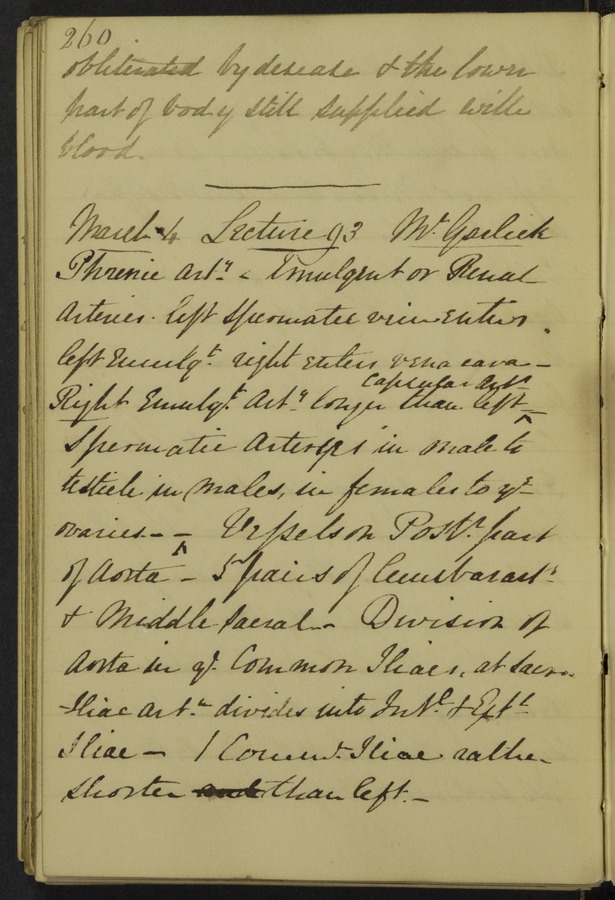 260
obliterated by desease & the lower
part of body still supplied with
blood.
March 4 Lecture 93 Mr. Garlick
Phrenic arty & Emulgent or Renal
Arteries. left spermatic vein enters
left Emulgt. right enters vena cava -
capsular arts
Right Emulgt. Arty longer than left -
Spermatic Arterys in male to
testicle in males, in females to ye
ovaries - - Vessels on Postr. part
of Aorta - 5 pairs of lumbar arts
& Middle Sacral - Division of
Aorta in ye. Common Iliacs, at Sacro
-Iliac artn divides into Intl. & Extl
Iliac - 1 Commn. Iliac rather
shorter than left. -